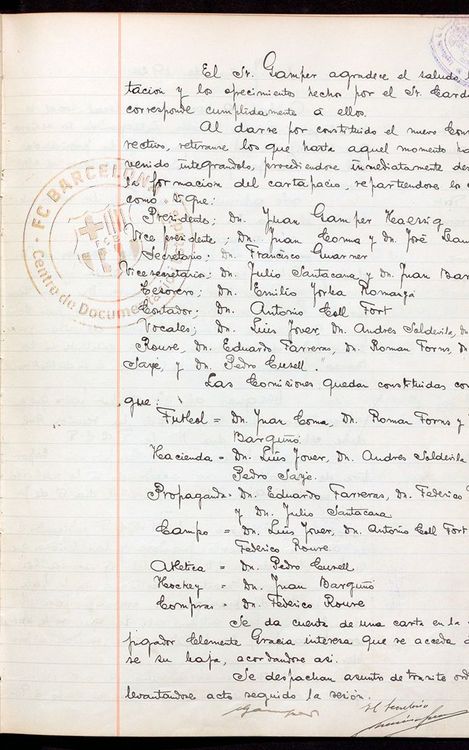 El Sr. Gamper agradece el saludo
tacion y los ofrecimientos hecho por el Sr. Card
corresponde cumplidamente á ellos.
Al darse por constituido el nuevo Con
rectivo, retiranse los que hasta aquel momento ha
venido integrandolo, procediendose inmediatamente
la formacion del cartapacio, repartiendose lo
como sigue:
Presidente; Dn. Juan Gamper Haessig
Vice presidente; Dn. Juan Coma y Dn. José Llau
Secretario; Dn. Francisco Guarner
Vicesecretario; Dn. Julio Santacana y Dn. Juan Bar
Tesorero; Dn. Emilio
Contador; Dn. Antonio Coll Fort
Vocales; Dn. Luis Jover, Dn. Andres Soldevila, Dn.
Roure, Dn. Eduardo Farreras, Dn. Roman Forns, Dn.
Sayé, y Dn. Pedro Cusell.
Las Comisiones quedan constituidas co
que:
Futbol = Dn. Juan Coma, Dn. Roman Forns y
Barguñó
Hacienda = Dn. Luis Jover, Dn. Andres Soldevila
Pedro Sayé.
Propaganda = Dn. Eduardo Farreras, Dn. Federico
y Dn. Julio Santacana
Campo = Dn. Luis Jover, Dn. Antonio Coll Fort
Federico Roure
Atletica = Dn. Pedro Cusell
Hockey = Dn. Juan Barguñó
Compras = Dn. Federico Roure
Se da cuenta de una carta en la
jugador Clemente Gracia interesa que se acceda
se su baja, acordandose asi.
Se despachan asunto de tramite ord
levantandose acto seguido la sesion.
Gamper
El secretario
FC BARCELONA
Centre de Documenta
FCB